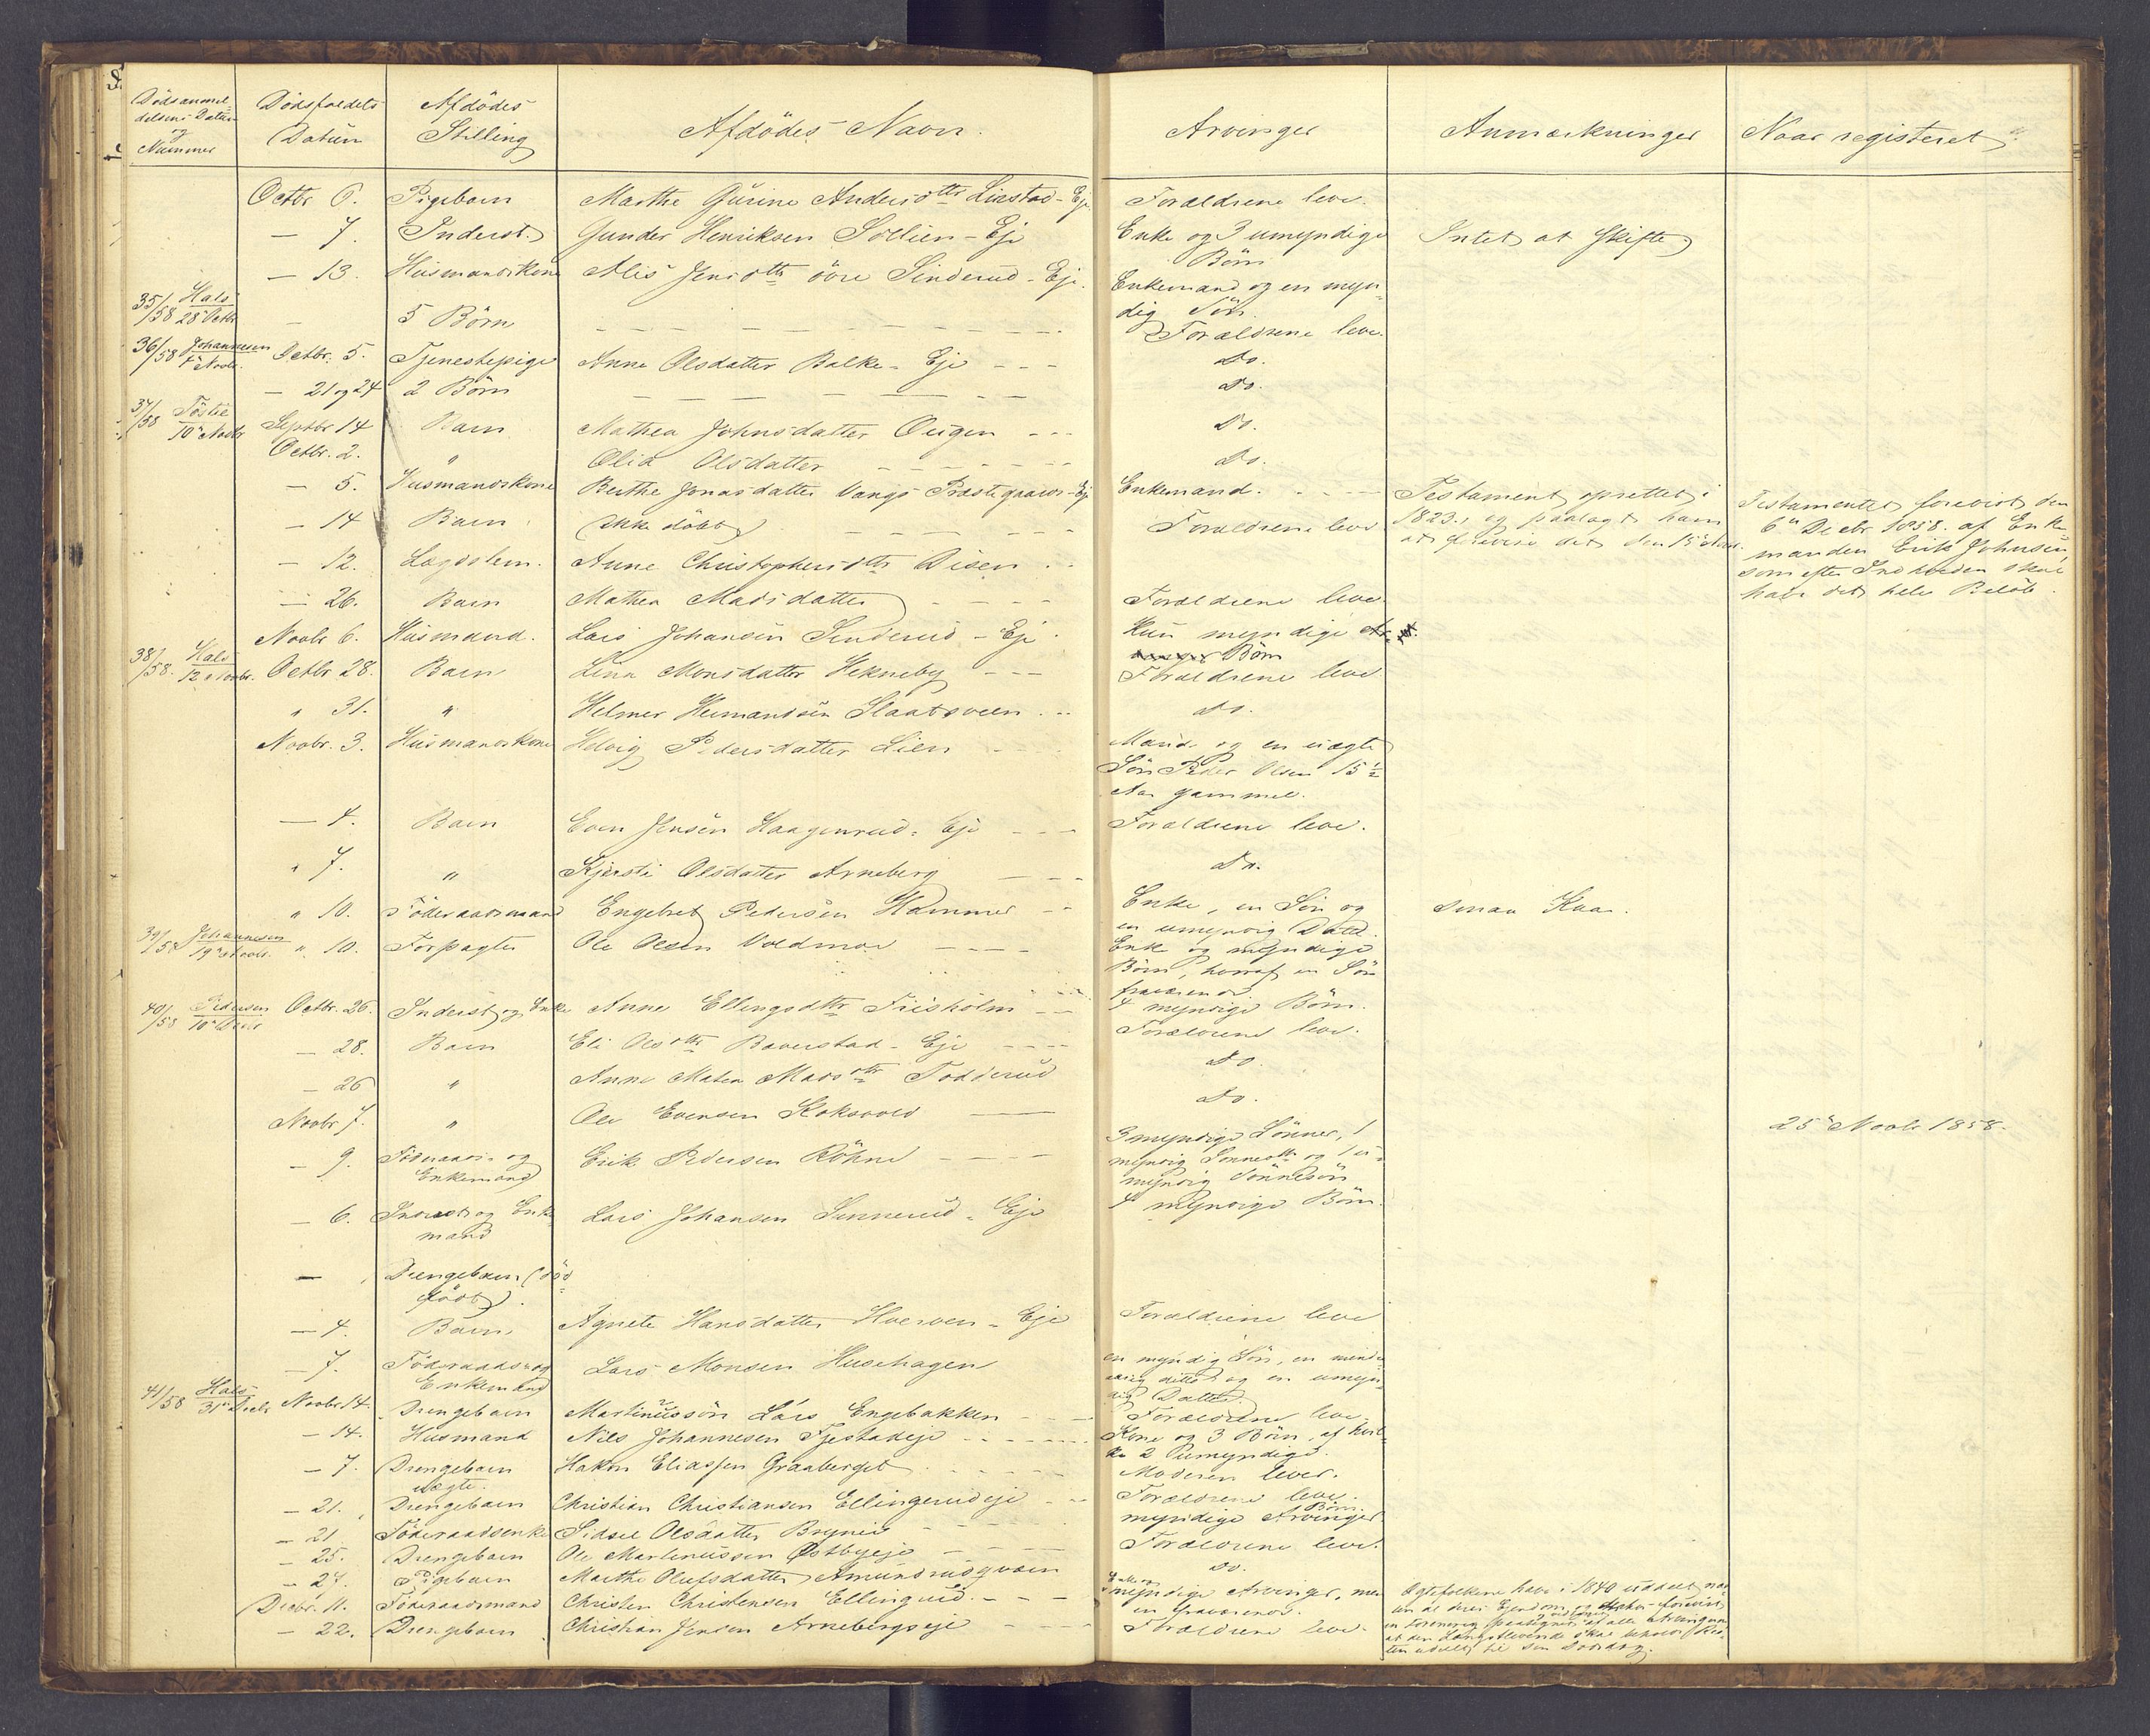 Dödsanmel- Dödsfaldets Afdödes Afdödes Navn. Arvinger Anmærkninger Naar registeret
delsens Datum Datum Stilling
og
Nummer
Octbr 6. Pigebarn Marthe Gurine Andersdttr Liestad-Eje Forældrene leve.
— 7. Inderst. Gunder Henriksen Sollien-Eje Enke og 3 umyndige Intet at skifte
Börn
— 13. Husmandskone Alis Jensdttr övre Sinderud-Eje. Enkemand og en myn-
dig Sön.
35/58 Hals 28 Octbr — 5 Börn — — — Forældrene leve.
36/58 Johannesen 1 Novbr. Octbr. 5. Tjenestepige Anne Olsdatter Balke-Eje — — Do.
— 21 og 24 2 Börn — — — Do.
37/58 10 Novbr Septbr 14 Barn Mathea Johnsdatter — — Do.
Octbr. 2. " Olia Olsdatter — — Do.
— 5. Husmandskone Berthe Jonasdatter Vangs Præstegaards-Eje Enkemand. Testament oprettet i Testamentet forevist den
1823, og paalagt ham 6 Decbr 1858. af Enke-
— 14 Barn (ikke döbt) — — Forældrene leve at forevise det den 15 manden Erik Johnsen,
— 12. Lægdslem. Anne Christophersdttr Disen som efter Indholdet skal
— 26. Barn Mathea Madsdatter — — Forældrene leve. have det hele Belöb.
Novbr 6. Husmand. Lars Johansen Sinderud-Eje. Kun myndige
Börn
38/58. Hals 12 Novbr. Octbr 28. Barn Lina Monsdatter Hekneby — — Forældrene leve
" 31. " Helmer Hermandsen Slaatsveen Do.
Novbr. 3. Husmandskone Helvig Pedersdatter Lien — Mand og en uægte
Sön Peder Olsen 15½
Aar gammel.
— 4. Barn Even Jensen Haagenrud-Eje — — Forældrene leve.
" 7. " Kjersti Olsdatter Arneberg — Do.
" 10. Föderaadsmand Engebret Pedersen Hammer — Enke, en Sön og smaa Kaar.
en umyndig Datter.
39/58 Johannesen 19 Novbr. " 10. Forpagter Ole Olsen Voldmoe — — Enke og myndige
Börn, hvoraf en Sön
fraværende
40/58 Pedersen 10 Decbr Octbr. 26. Inderst og Enke Anne Ellingsdttr Friisholm — 4 myndige Börn.
— 28. Barn Eli Olsdttr Baverstad-Eje — — Forældrene leve.
— 26 " Anne Matea Madsdttr Todderud Do.
Novbr 7. " Ole Evensen Koksvold — Do.
— 9. Föderaads- og Erik Pedersen Röhne — — 3 myndige Sönner, 1 25 Novbr 1858.
Enkemand myndig Sönnedttr og 1 u-
myndig Sönnesön
— 6. Inderst og Enke- Lars Johansen Sinnerud-Eje 4 myndige Börn.
mand
— Drengebarn (död-
födt).
— 4. Barn. Agnete Hansdatter Hverven-Eje Forældrene leve
— 7. Föderaads- og Lars Monsen Husehagen en myndig Sön, en minde-
Enkemand aarig ditto og en umyn-
dig Datter
41/58 Hals 31 Decbr Novbr 14. Drengebarn Martinussön Lars Engebakken — Forældrene leve.
— 14. Husmand Nils Johannesen Fjestadeje — — Kone og 3 Börn, af hvil-
ke 2 umyndige.
— 7. Drengebarn Hakon Eliassen Graaberget — Moderen lever.
uægte.
— 21. Drengebarn Christian Christiansen Ellingsrudeje — Forældrene leve.
— 21. Föderaadsenke Sidsel Olsdatter Brynie — myndige Arvinger Börn.
— 25. Drengebarn Ole Martinussen Östbyeje — — Forældrene leve.
— 27. Pigebarn Marthe Olufsdatter Amundrudqværn Do.
Decbr. 11. Föderaadsmand Christen Christensen Ellingrud. — — Enke og myndige Arvinger, men Ægtefolkene have i 1840
en fraværende.
— 22. Drengebarn Christian Jensen Arnebergseje — — Forældrene leve. at den Længstlevende skal beholde
til sin Dödsdag.